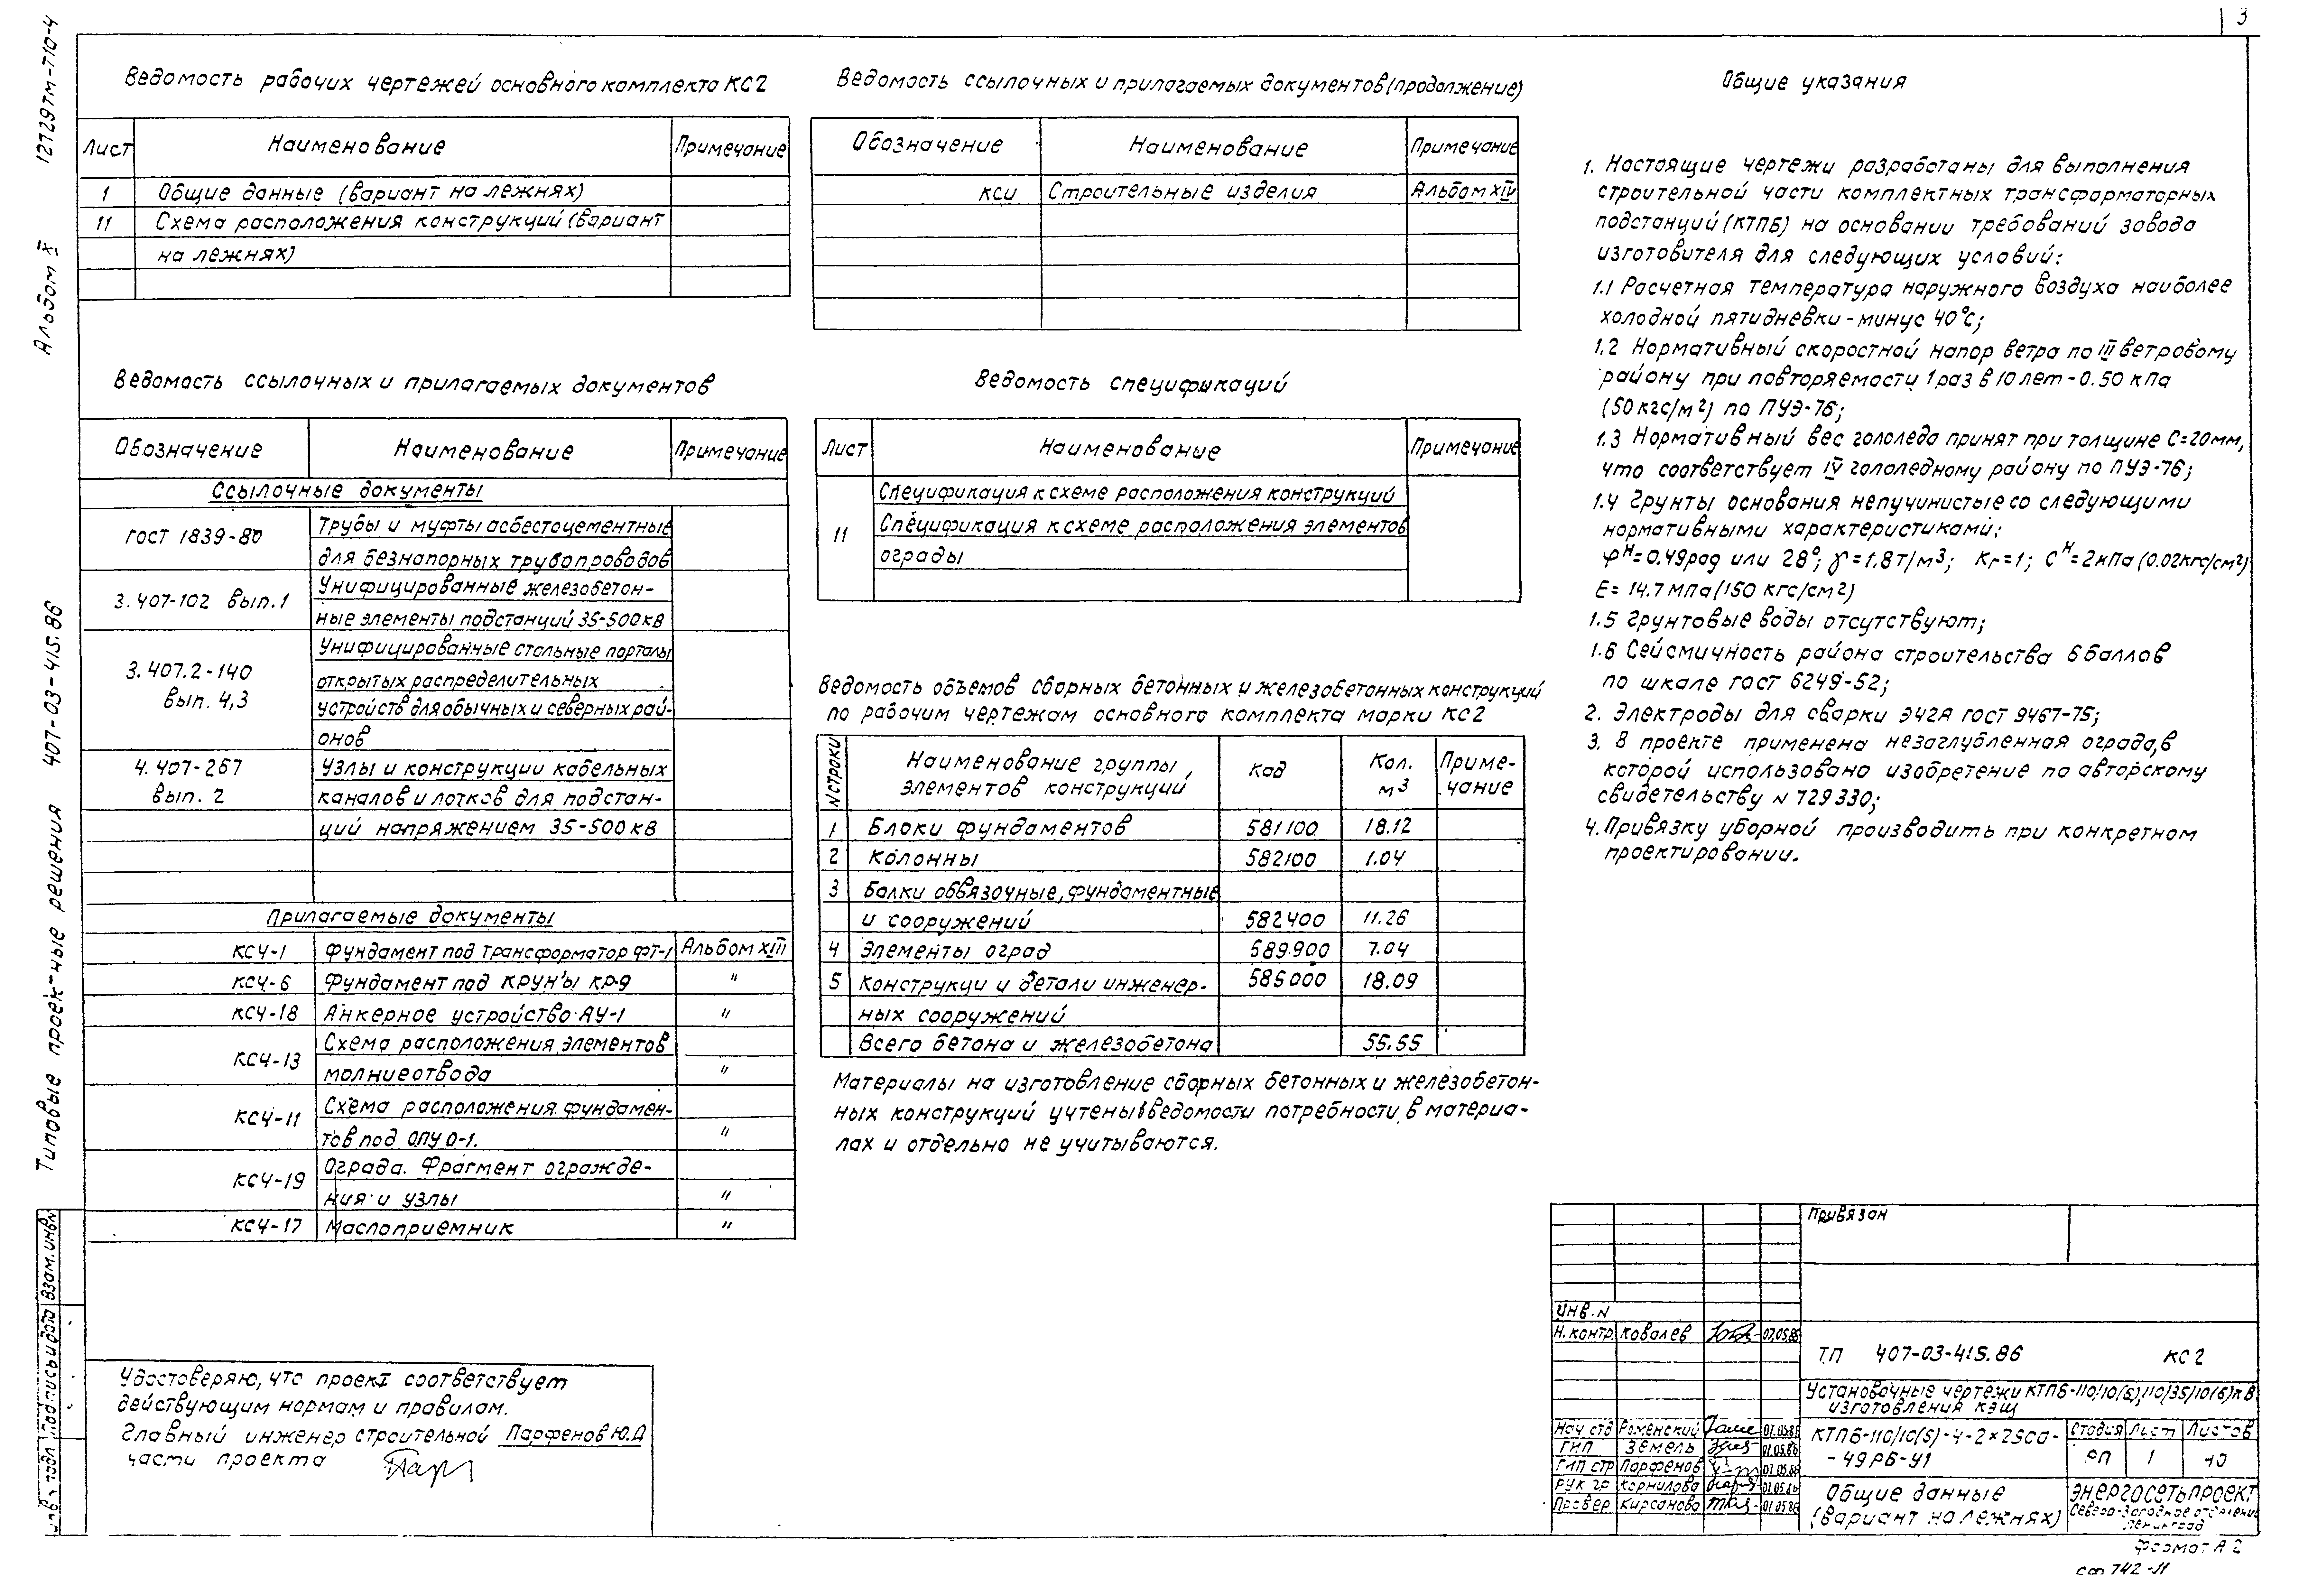 3
12729тм-т10-4
Альбом X
407-03-415.86
Типовые проек-ные решения
Ведомость рабочих чертежей основного комплекта КС2
Лист Наименование Примечание
1 Общие данные (вариант на лежнях)
11 Схема расположения конструкций (вариант
на лежнях)
Ведомость ссылочных и прилагаемых документов
Обозначение Наименование Примечание
Ссылочные документы
ГОСТ 1839-80 Трубы и муфты асбестоцементные
для безнапорных трубопроводов
3.407-102 вып.1 Унифицированные железобетон-
ные элементы подстанций 35-500кВ
3.407.2-140 Унифицированные стальные порталы
вып. 4,3 открытых распределительных
устройств для обычных и северных рай-
онов
4.407-267 Узлы и конструкции кабельных
вып. 2 каналов и лотков для подстан-
ций напряжением 35-500кВ
Прилагаемые документы
КС4-1 Фундамент под трансформатор ФТ-1 Альбом XIII
КС4-6 Фундамент под КРУН'ы КР-9 "
КС4-18 Анкерное устройство АУ-1 "
КС4-13 Схема расположения элементов
молниеотвода "
КС4-11 Схема расположения фундамен-
тов под ОПУ 0-1. "
КС4-19 Ограда. Фрагмент огражде-
ния и узлы "
КС4-17 Маслоприемник "
Удостоверяю, что проект соответствует
действующим нормам и правилам.
Главный инженер строительной Парфенов Ю.А
части проекта
Ведомость ссылочных и прилагаемых документов (продолжение)
Обозначение Наименование Примечание
КСИ Строительные изделия Альбом XIV
Ведомость спецификаций
Лист Наименование Примечание
Спецификация к схеме расположения конструкций
11 Спецификация к схеме расположения элементов
ограды
Ведомость объемов сборных бетонных и железобетонных конструкций
по рабочим чертежам основного комплекта марки КС2
N строки Наименование группы, Код Кол. Приме-
элементов конструкции м3 чание
1 Блоки фундаментов 581100 18.12
2 Колонны 582100 1.04
3 Балки обвязочные, фундаментные
и сооружений 582400 11.26
4 Элементы оград 589.900 7.04
5 Конструкци и детали инженер- 585000 18.09
ных сооружений
Всего бетона и железобетона 55.55
Материалы на изготовление сборных бетонных и железобетон-
ных конструкций учтены в ведомости потребности в материа-
лах и отдельно не учитываются.
Общие указания
1. Настоящие чертежи разработаны для выполнения
строительной части комплектных трансформаторных
подстанций (КТПБ) на основании требований завода
изготовителя для следующих условий:
1.1 Расчетная температура наружного воздуха наиболее
холодной пятидневки - минус 40°С;
1.2 Нормативный скоростной напор ветра по III ветровому
району при повторяемости 1 раз в 10 лет - 0.50 кПа
(50 кгс/м2) по ПУЭ-76;
1.3 Нормативный вес гололеда принят при толщине С=20мм,
что соответствует IV гололедному району по ПУЭ-76;
1.4 Грунты основания непучинистые со следующими
нормативными характеристиками:
φН=0.49рад или 28°; γ=1.8т/м3; Кг=1; СН=2кПа (0.02кгс/см2)
Е= 14.7 мПа (150 кгс/см2)
1.5 Грунтовые воды отсутствуют;
1.6 Сейсмичность района строительства 6 баллов
по шкале ГОСТ 6249-52;
2. Электроды для сварки Э42А ГОСТ 9467-75;
3. В проекте применена незаглубленная ограда, в
которой использовано изобретение по авторскому
свидетельству N 729330;
4. Привязку уборной производить при конкретном
проектировании.
Привязан
Инв. N
Н. контр. Ковалев 07.05.86
ТП 407-03-415.86 КС2
Установочные чертежи КТПБ-110/10(6);110/35/10(6)кВ
изготовления КЭЩ
Нач отд Роменский 01.05.86
ГИП Земель 01.05.86
ГИП стр Парфенов 01.05.86
Рук гр Корнилова 01.05.86
Провер Кирсанова 01.05.86
КТПБ-110/10(6)-4-2×2500-
-49РБ-У1
Стадия Лист Листов
РП 1 10
Общие данные
(вариант на лежнях)
Энергосетьпроект
Северо-Западное отделение
Ленинград
Формат А2
сф 742-11
Взам. инв N
Подпись и дата
Инв. N подл